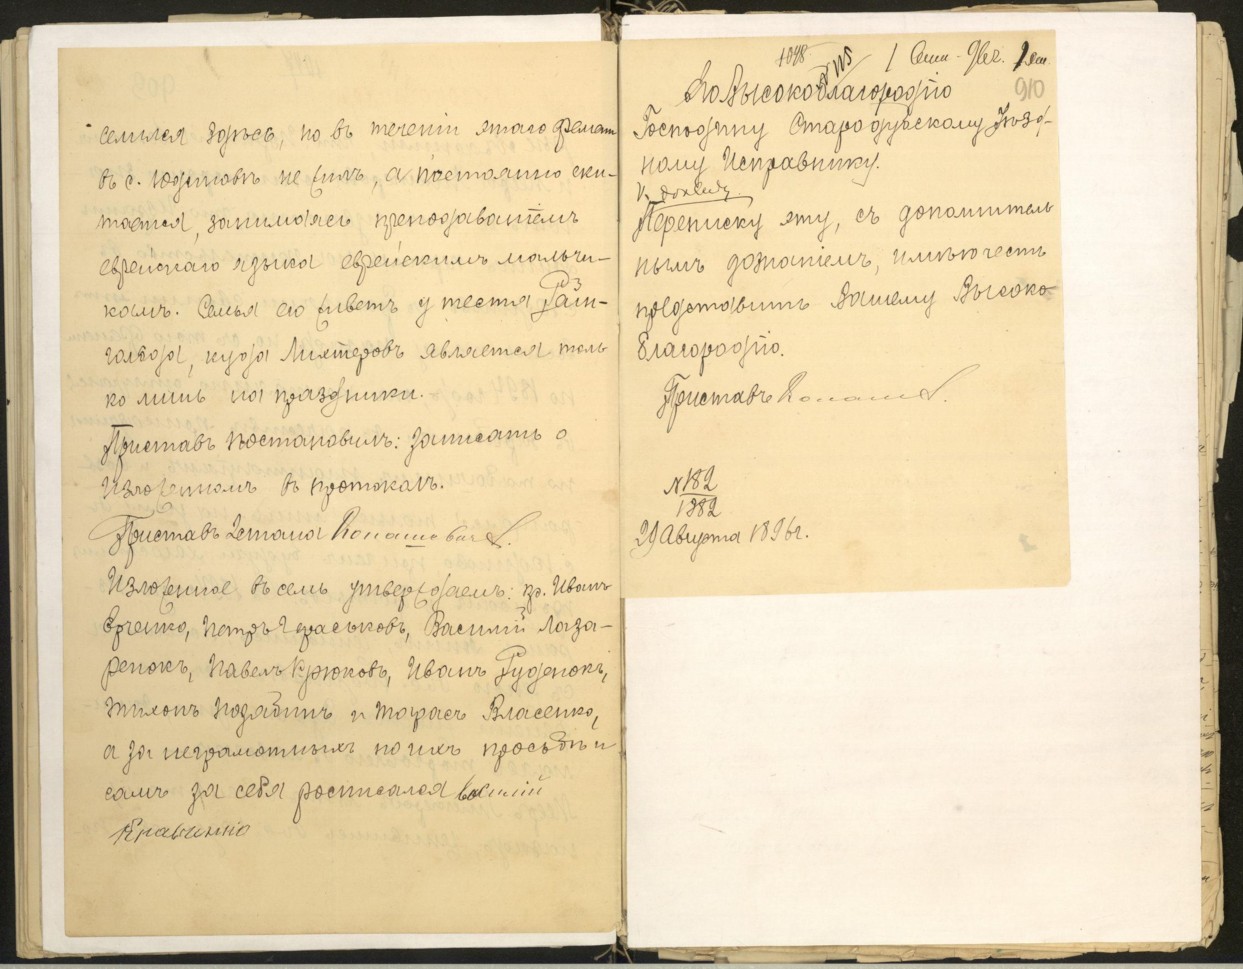 селился здѣсь, но въ теченіи этого времени
въ с. Юдиновѣ не былъ, а постоянно ски-
тается, занимаясь преподаваніемъ
еврейскаго языка еврейскимъ мальчи-
камъ. Семья его живетъ у тестя Рай-
, куда Лихтеровъ является толь
ко лишь на праздники.
Приставъ постановилъ: записать о
изложенномъ въ протоколъ.
Приставъ 2 стана
Изложенное въ семъ утверждаемъ: кр. Иванъ
Петръ Гераськовъ, Василій Лаза-
ренокъ, Павелъ Крюковъ, Иванъ Руденокъ,
Тихонъ и Тарасъ Власенко,
а за неграмотныхъ по ихъ просьбѣ и
самъ за себя росписался Василій
1048
910
Его Высокоблагородію
Господину Стародубскому Уѣзд-
ному Исправнику.
Переписку эту, съ дополнитель
нымъ дознаніемъ, имѣю честь
представить Вашему Высоко-
благородію.
Приставъ
№ 182
1882
29 Августа 1896 г.